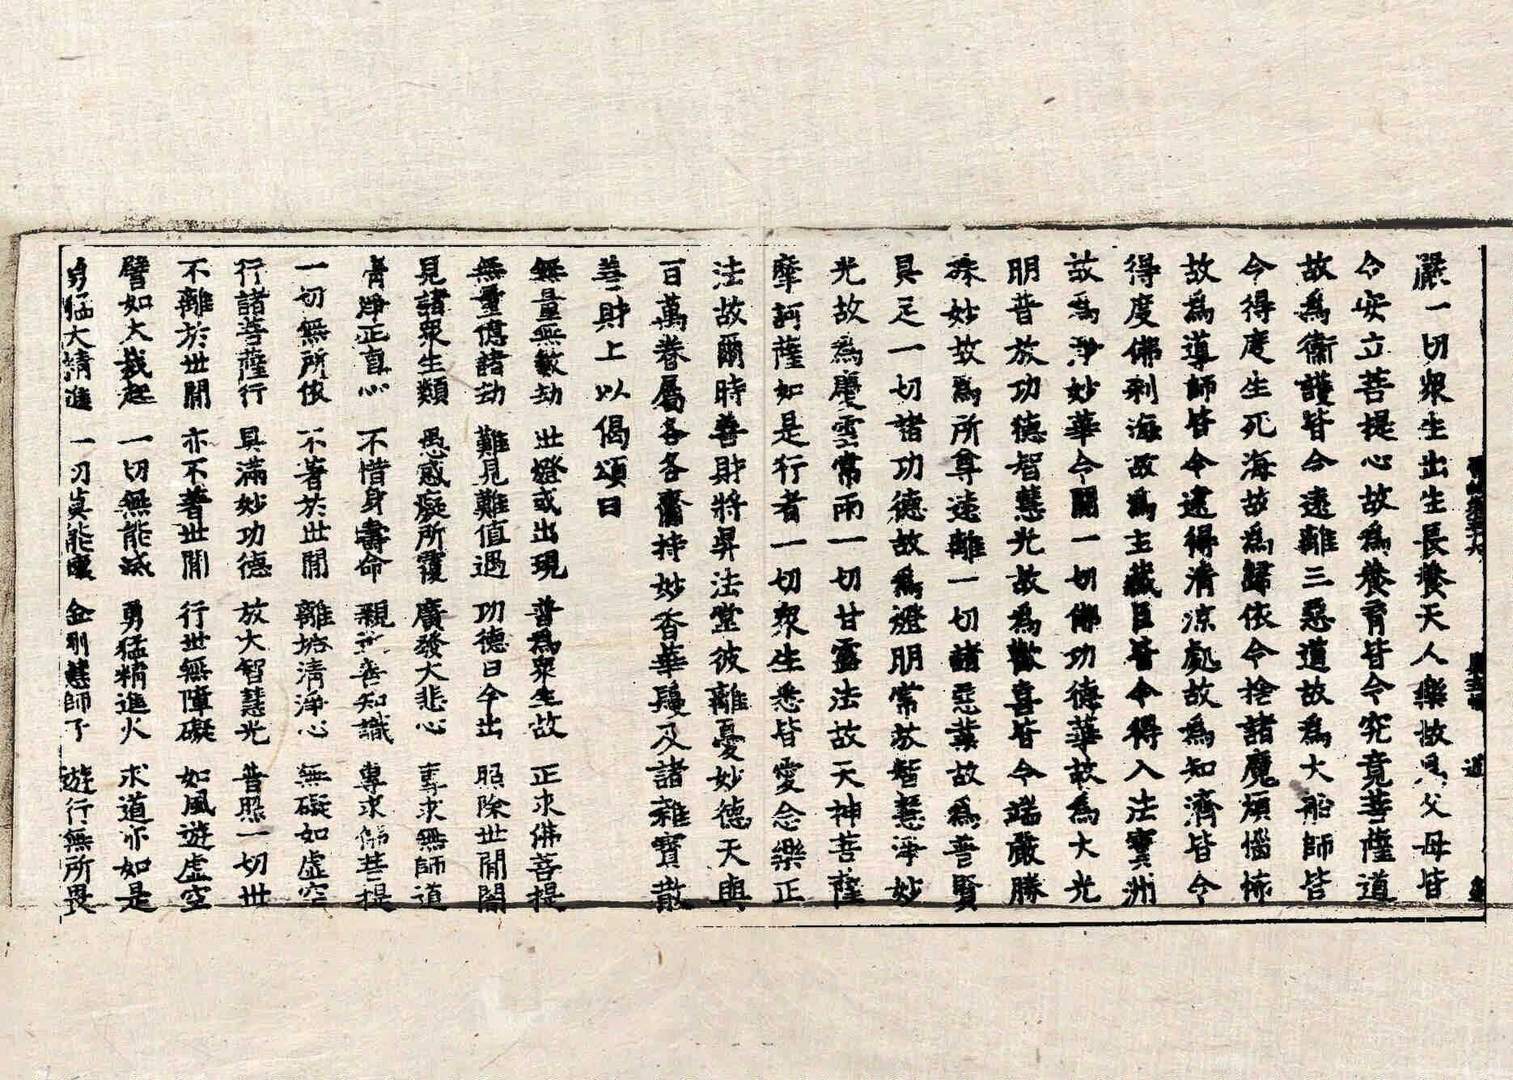 嚴一切衆生出生長養天人樂故為父母皆
令安立菩提心故為養育皆令究竟菩薩道
故為衛護皆令遠離三惡道故為大船師皆
令得度生死海故為歸依令捨諸魔煩惱怖
故為導師皆令逮得清涼處故為知濟皆令
得度佛刹海故為主藏臣皆令得入法寶洲
故為淨妙華令開一切佛功德華故為大光
明普放功德智慧光故為歡喜皆令端嚴勝
殊妙故為所尊遠離一切諸惡業故為普賢
具足一切諸功德故為燈明常放智慧淨妙
光故為慶雲常雨一切甘露法故天神菩薩
摩訶薩如是行者一切衆生悉皆愛念樂正
法故爾時善財將昇法堂彼離憂妙德天與
百萬眷屬各各齎持妙香華鬘及諸雜寶散
善財上以偈頌曰
無量無數劫 世燈或出現 普為衆生故 正求佛菩提
無量億諸劫 難見難值遇 功德日今出 照除世間闇
見諸衆生類 愚惑癡所覆 廣發大悲心 專求無師道
清淨正直心 不惜身壽命 親近善知識 專求佛菩提
一切無所依 不著於世間 離垢清淨心 無礙如虛空
行諸菩薩行 具滿妙功德 放大智慧光 普照一切世
不離於世間 亦不著世間 行世無障礙 如風遊虛空
譬如大哉起 一切無能滅 勇猛精進火 求道亦如是
勇猛大精進 一切莫能壞 金剛慧師子 遊行無所畏